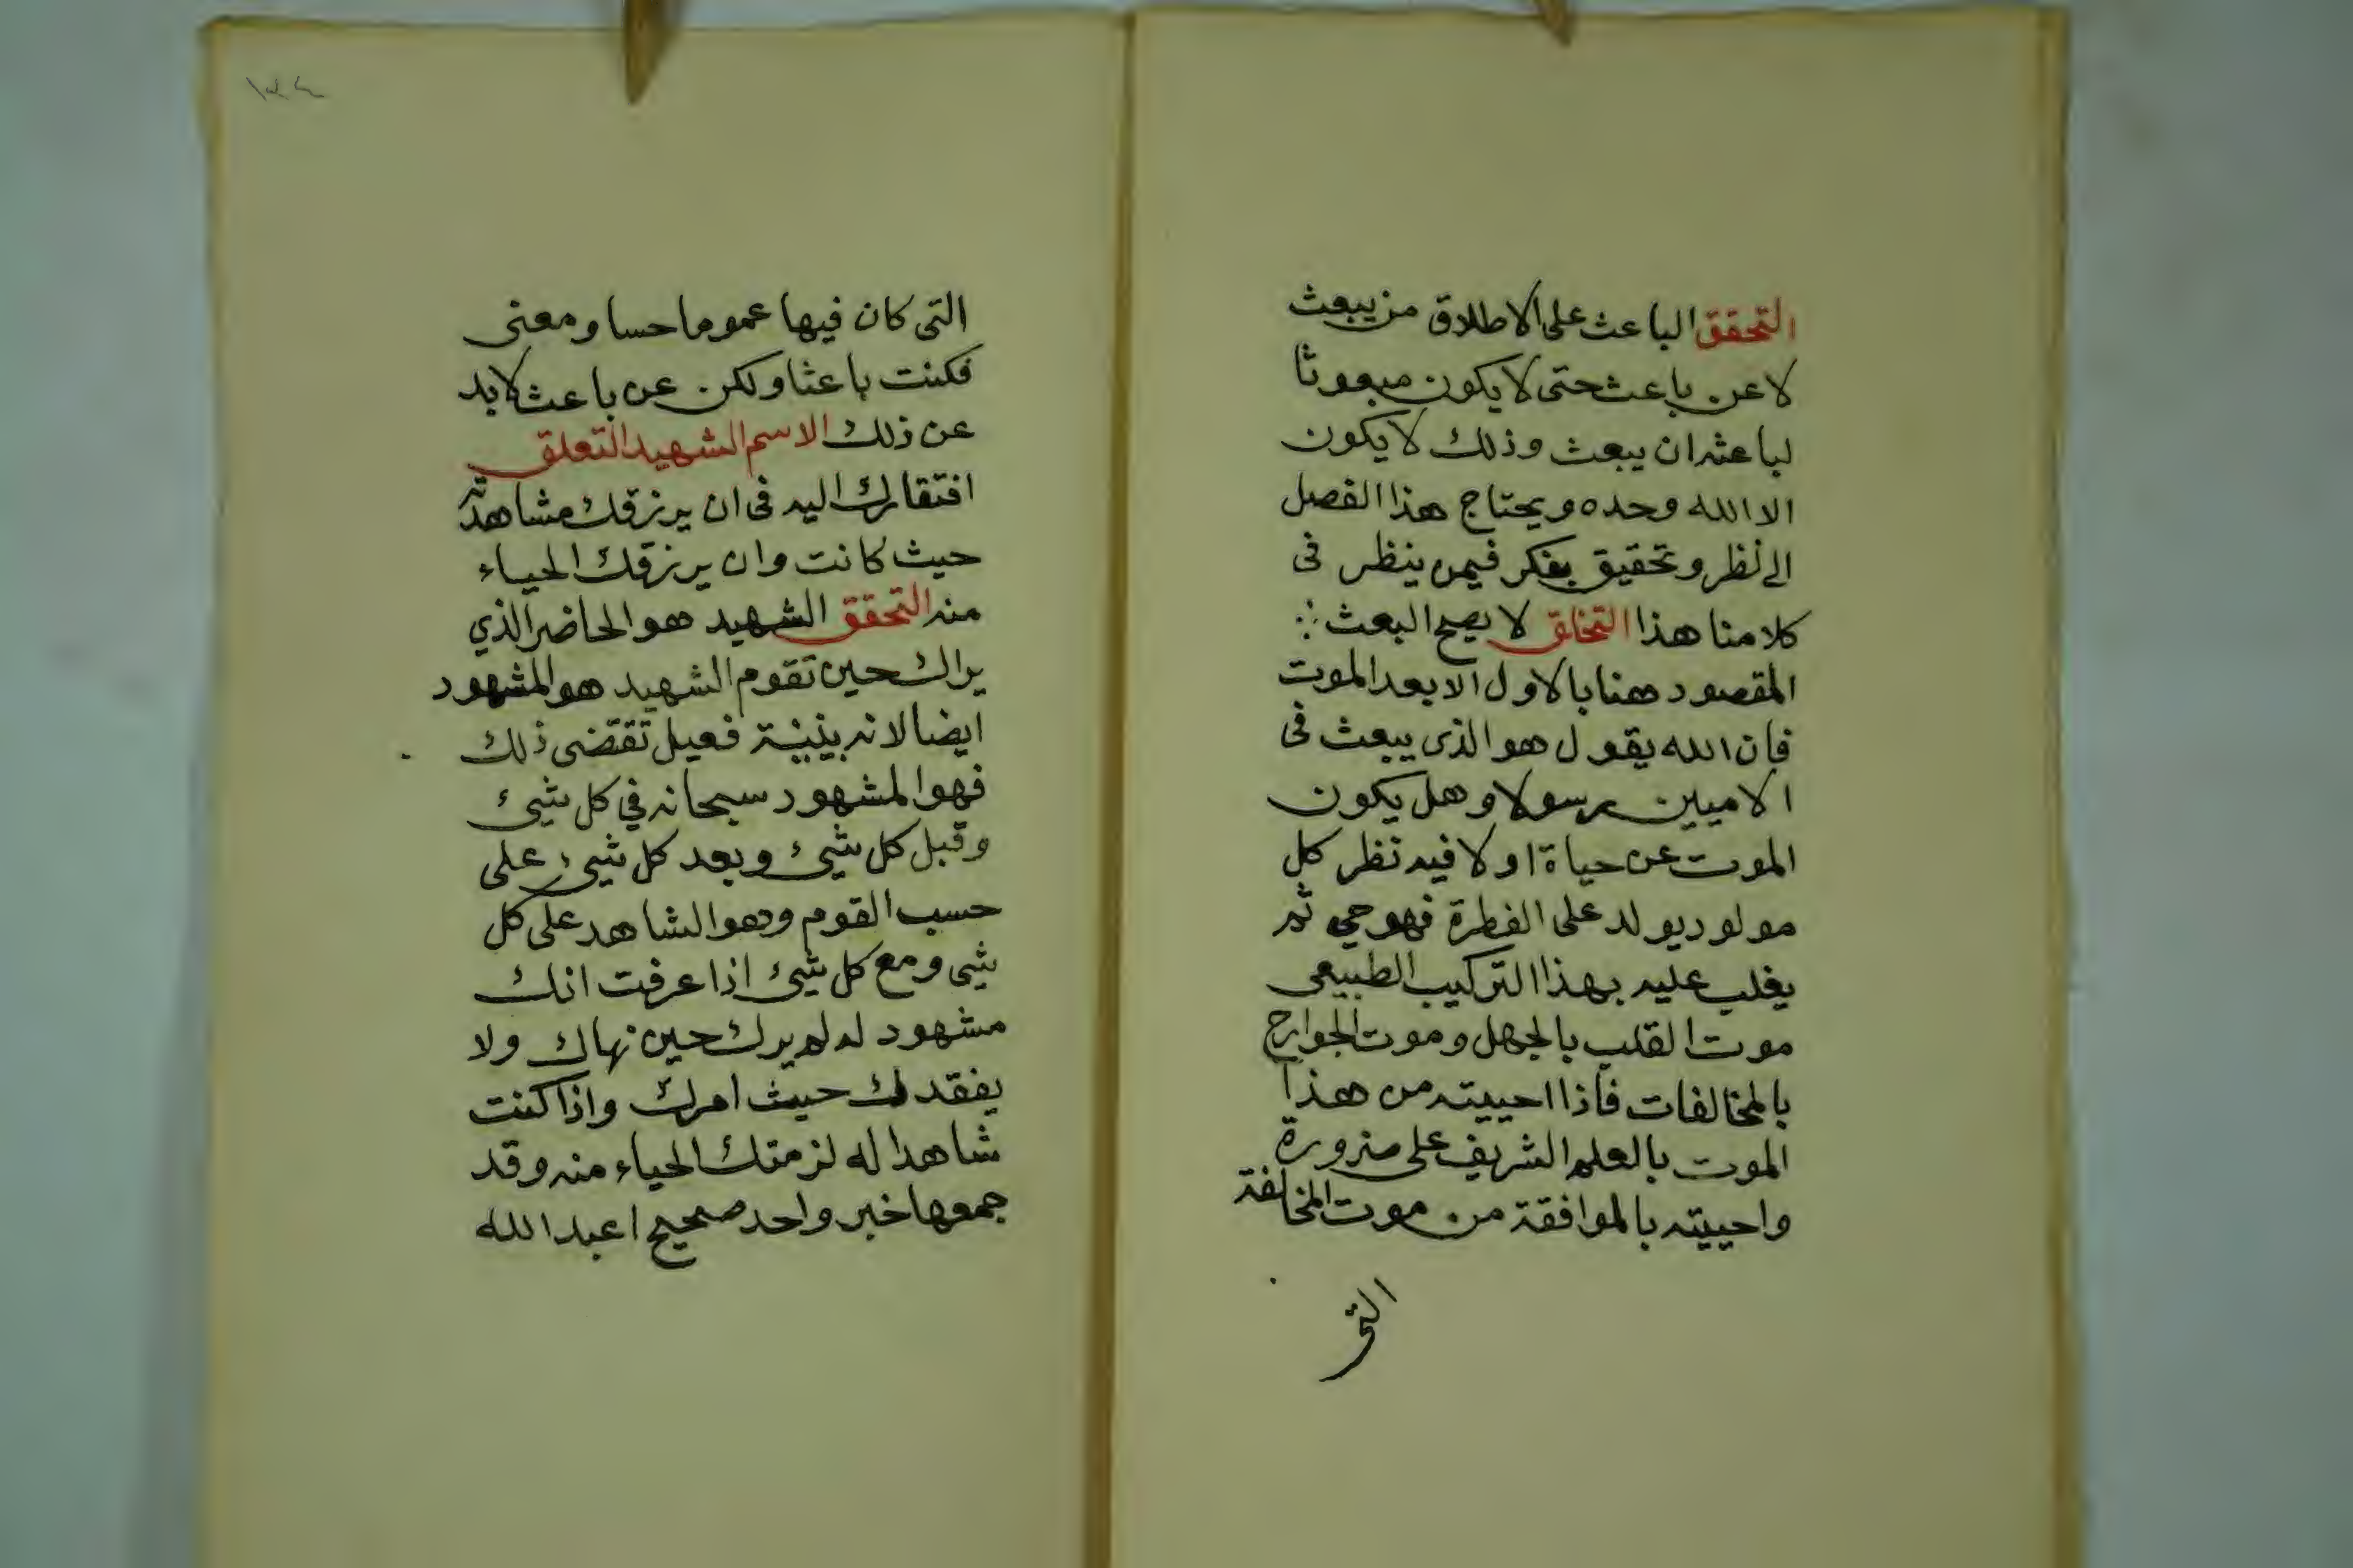 التحقق الباعث على الاطلاق من يبعث
لا عن باعث حتى لا يكون مبعوثا
لباعثه ان يبعث وذلك لا يكون
الا الله وحده ويحتاج هذا الفصل
الى نظر وتحقيق بفكر فيمن ينظر فى
كلامنا هذا التخلق لا يصح البعث
المقصود هنا بالاول الا بعد الموت
فان الله يقول هو الذى يبعث فى
الاميين رسولا وهل يكون
الموت عن حياة او لا فيه نظر كل
مولود يولد على الفطرة فهو حي ثم
يغلب عليه بهذا التركيب الطبيعى
موت القلب بالجهل وموت الجوارح
بالمخالفات فاذا احييته من هذا
الموت بالعلم الشريف على ضرورة
واحييته بالموافقة من موت المخالفة
التى
١٣٤
التى كان فيها عموما حسا ومعنى
فكنت باعثا ولكن عن باعث لا بد
عن ذلك الاسم الشهيد التعلق
افتقارك اليه فى ان يرزقك مشاهدته
حيث كانت وان يرزقك الحياء
منه التحقق الشهيد هو الحاضر الذي
يراك حين تقوم الشهيد هو المشهود
ايضا لانه بنية فعيل تقتضى ذلك
فهو المشهود سبحانه في كل شيئ
وقبل كل شيئ وبعد كل شيئ على
حسب القوم وهو الشاهد على كل
شيى ومع كل شيئ اذا عرفت انك
مشهود له لم يرك حين نهاك ولا
يفقدك حيث امرك واذا كنت
شاهدا له لزمتك الحياء منه وقد
جمعها خبر واحد صحيح اعبد الله